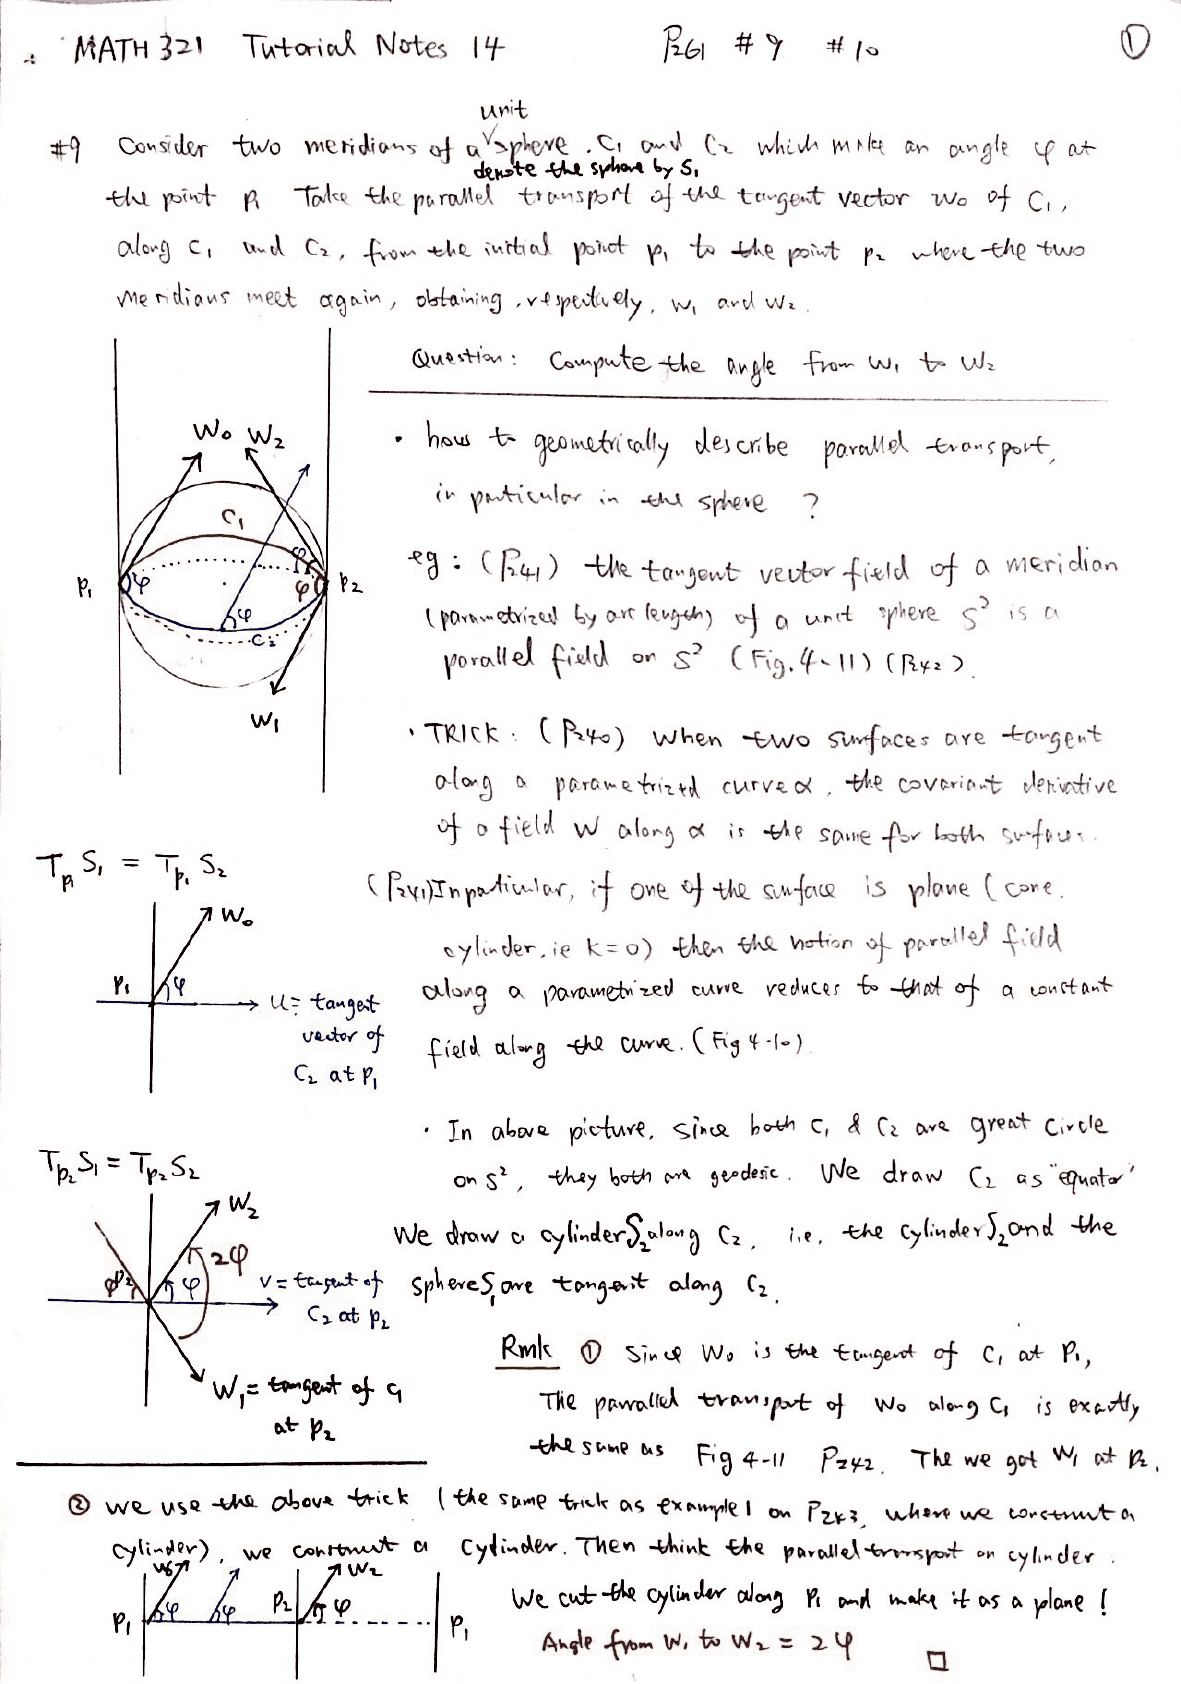 MATH 321 Tutorial Notes 14 P261 #9 #10 ①
unit
#9 Consider two meridians of a sphere . C1 and C2 which make an angle φ at
denote the sphere by S1
the point P1 Take the parallel transport of the tangent vector w0 of C1,
along C1 and C2, from the initial point p1 to the point p2 where the two
meridians meet again, obtaining, respectively, w1 and w2.
Question: Compute the angle from w1 to w2
W0 W2
C1
φ
P1 φ φ P2
φ
C2
W1
• how to geometrically describe parallel transport,
in particular in the sphere ?
eg: (P241) the tangent vector field of a meridian
(parametrized by arc length) of a unit sphere S² is a
parallel field on S² (Fig. 4-11) (P242).
• TRICK: (P240) When two surfaces are tangent
along a parametrized curve α, the covariant derivative
of a field w along α is the same for both surfaces.
(P241) In particular, if one of the surface is plane (cone,
cylinder, ie K=0) then the notion of parallel field
along a parametrized curve reduces to that of a constant
field along the curve. (Fig 4-10).
Tp1 S1 = Tp1 S2
W0
P1 φ u= tangent
vector of
C2 at P1
• In above picture, since both C1 & C2 are great circle
on S², they both are geodesic. We draw C2 as "equator"
We draw a cylinder S2 along C2, i.e. the cylinder S2 and the
sphere S1 are tangent along C2.
Tp2 S1 = Tp2 S2
W2
2φ
φ P2 φ v= tangent of
C2 at P2
W1= tangent of C1
at P2
Rmk ① Since W0 is the tangent of C1 at P1,
The parrallel transport of W0 along C1 is exactly
the same as Fig 4-11 P242. The we got W1 at P2.
② we use the above trick (the same trick as example 1 on P243, where we construct a
cylinder), we construct a cylinder. Then think the parallel transport on cylinder.
W0 W2
P1 φ φ P2 φ P1
We cut the cylinder along P1 and make it as a plane!
Angle from W1 to W2 = 2φ □